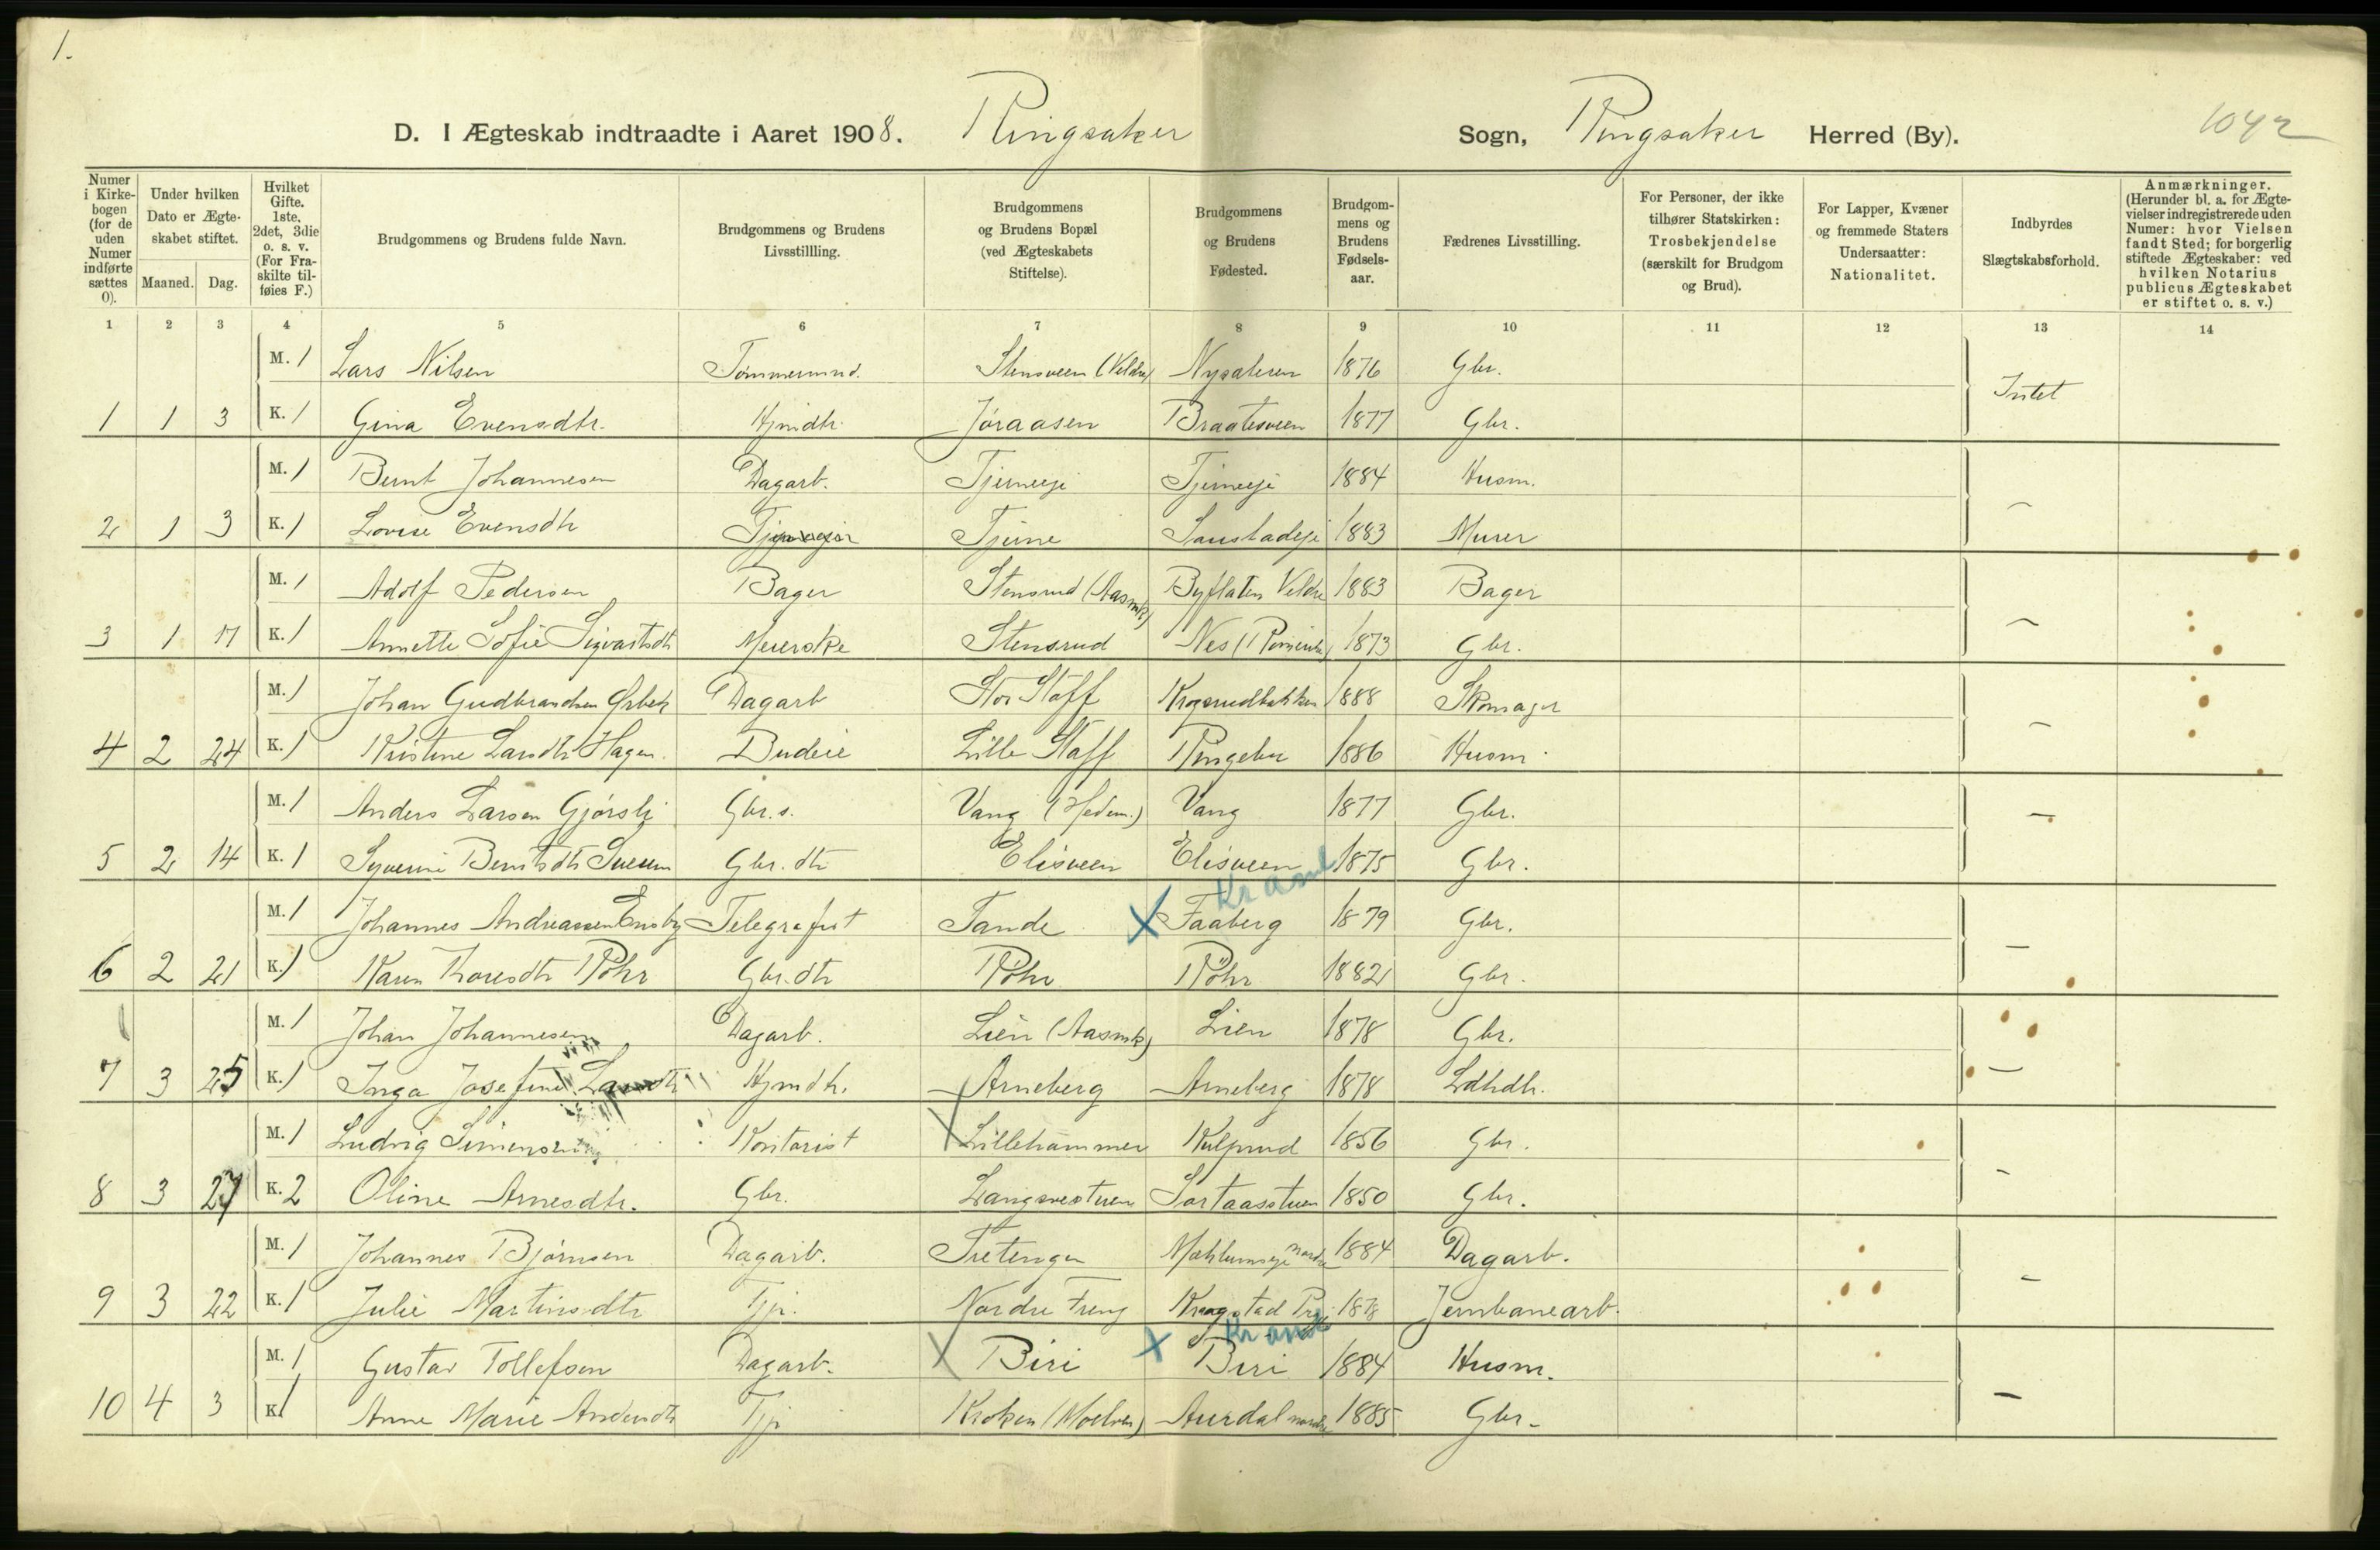 1.
D. I Ægteskab indtraadte i Aaret 1908. Ringsaker Sogn, Ringsaker Herred (By). 1042
Numer i Kirkebogen (for de uden Numer indførte sættes 0).
Under hvilken Dato er Ægteskabet stiftet.
Maaned. Dag.
Hvilket Gifte. 1ste, 2det, 3die o. s. v. (For Fraskilte tilføies F.)
Brudgommens og Brudens fulde Navn.
Brudgommens og Brudens Livsstillling.
Brudgommens og Brudens Bopæl (ved Ægteskabets Stiftelse).
Brudgommens og Brudens Fødested.
Brudgommens og Brudens Fødselsaar.
Fædrenes Livsstilling.
For Personer, der ikke tilhører Statskirken: Trosbekjendelse (særskilt for Brudgom og Brud).
For Lapper, Kvæner og fremmede Staters Undersaatter: Nationalitet.
Indbyrdes Slægtskabsforhold.
Anmærkninger. (Herunder bl. a. for Ægtevielser indregistrerede uden Numer: hvor Vielsen fandt Sted; for borgerlig stiftede Ægteskaber: ved hvilken Notarius publicus Ægteskabet er stiftet o. s. v.)
1 2 3 4 5 6 7 8 9 10 11 12 13 14
M. 1 Lars Nilsen Tømmermnd. Stensveen (Veldre) Nysæteren 1876 Gbr.
Intet
1 1 3 K. 1 Gina Evensdtr. Hjmdtr. Jøraasen Braatesveen 1877 Gbr.
M. 1 Bernt Johannesen Dagarb. Tjerneeje Tjerneeje 1884 Husm.
2 1 3 K. 1 Lovise Evensdtr Tjerne 1883 Murer
M. 1 Adolf Pedersen Bager Stensrud (Aasmk) Byflaten Veldre 1883 Bager
3 1 17 K. 1 Annette Sofie Sigvartsdtr Meierske Stensrud Nes 1873 Gbr.
M. 1 Johan Gudbrandsen Ørbek Dagarb Stor Staff Krogsrudbakken 1888 Skomager
4 2 24 K. 1 Kristine Larsdtr Hagen. Budeie Lille Staff Ringebu 1886 Husm.
M. 1 Anders Larsen Gjørsli Gbr. s. Vang (Hedem.) Vang 1877 Gbr.
5 2 14 K. 1 Syverine Berntsdtr Sveen Gbr. dtr Elisveen Elisveen 1875 Gbr.
Kr amt
M. 1 Johannes Andreassen Ensby Telegrafist Tande X Faaberg 1879 Gbr.
6 2 21 K. 1 Karen Thoresdtr Røhr Gbr. dtr Røhr Røhr 1882 Gbr.
M. 1 Johan Johannesen Dagarb. Lien (Aasmk) Lien 1878 Gbr.
7 3 25 K. 1 Inga Josefine Larsdtr Hjmdtr. Arneberg Arneberg 1878
M. 1 Ludvig Simensen Kontorist X Lillehammer Kulsrud 1856 Gbr.
8 3 27 K. 2 Oline Arnesdtr. Gbr. Langsvestuen 1850 Gbr.
M. 1 Johannes Bjørnsen Dagarb. Tretengen Mæhlumseje nordre 1884 Dagarb.
9 3 22 K. 1 Julie Martinsdtr Tjp. Nordre Treng 1878 Jernbanearb.
Kr amt
M. 1 Gustav Tollefsen Dagarb. X Biri X Biri 1884 Husm.
10 4 3 K. 1 Anne Marie Andersdtr Tjp Kroken (Moelven) Aurdal nordre 1885 Gbr.